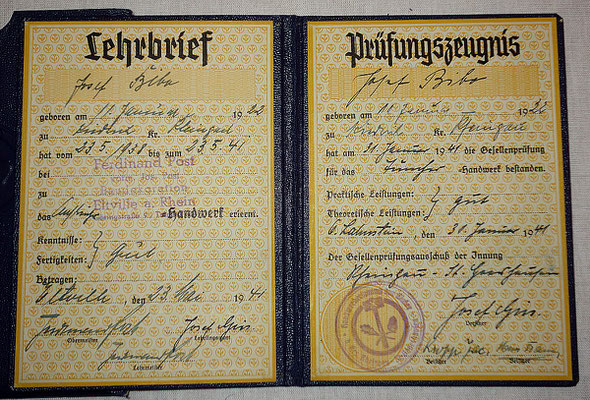 Lehrbrief
Josef Bibo
geboren am 11 Januar 1922
zu Kr. Rheingau
hat vom 23.5.1938 bis zum 23.5.41
bei Ferdinand Kost
zu Eltville a. Rhein
das -Handwerk erlernt.
Kenntnisse:
Fertigkeiten: } Gut
Betragen:
Eltville, den 23. Mai 1941
Ferdinand Kost Josef
Obermeister Lehrlingswart
Ferdinand Kost
Lehrmeister
Prüfungszeugnis
Josef Bibo
geboren am 11. Januar 1922
zu Kr. Rheingau
hat am 31. Januar 1941 die Gesellenprüfung
für das Tüncher -Handwerk bestanden.
Praktische Leistungen:
Theoretische Leistungen: } gut
O. Lahnstein, den 31. Januar 1941
Der Gesellenprüfungsausschuß der Innung
Rheingau - St. Goarshausen
Josef
Vorsitzer
Beisitzer Beisitzer